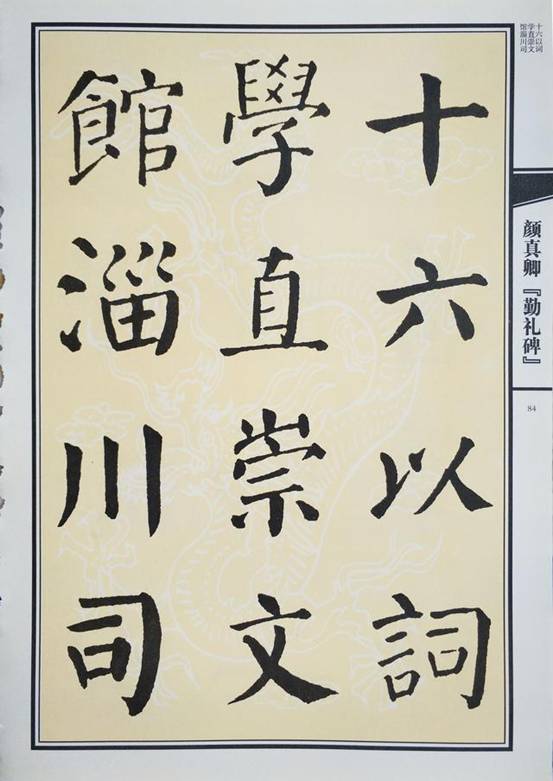 十六以詞
學直崇文
館淄川司
十六以词
学直崇文
馆淄川司
颜真卿『勤礼碑』
84